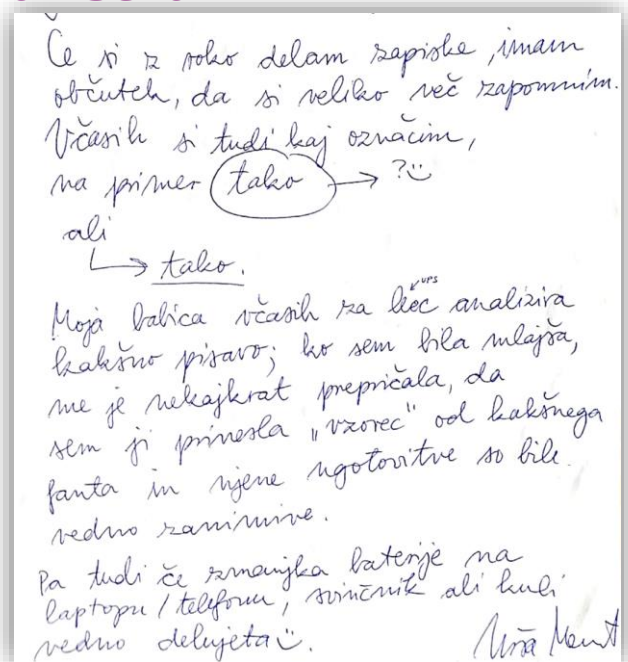 Če si z roko delam zapiske, imam
občutek, da si veliko več zapomnim.
Včasih si tudi kaj označim,
na primer tako → ?☺
ali
↳ tako.
ups
Moja babica včasih za hec analizira
kakšno pisavo; ko sem bila mlajša,
me je nekajkrat prepričala, da
sem ji prinesla „vzorec" od kakšnega
fanta in njene ugotovitve so bile
vedno zanimive.
Pa tudi če zmanjka baterije na
laptopu / telefonu, svinčnik ali kuli
vedno delujeta ☺.